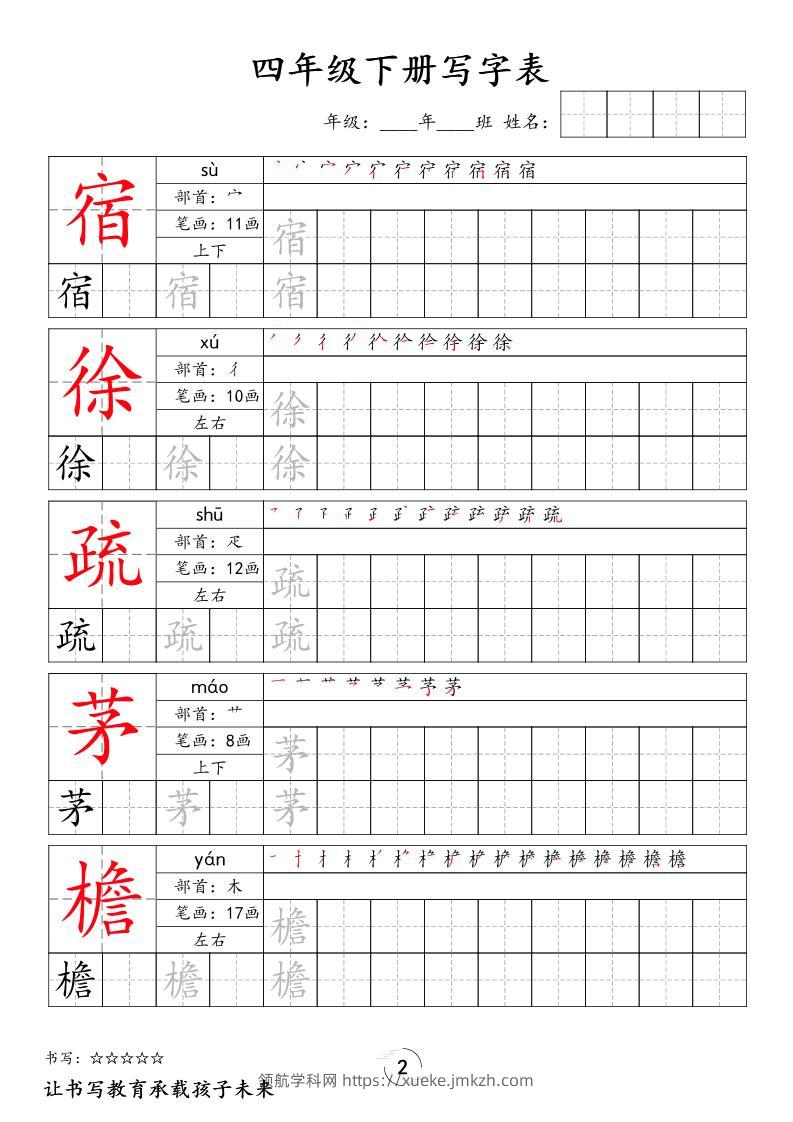 四年级下册写字表
年级：____年____班 姓名：
宿
sù
部首：宀
笔画：11画
上下
宿
宿
宿 宿 宿
徐
xú
部首：彳
笔画：10画
左右
徐
徐
徐 徐 徐
疏
shū
部首：疋
笔画：12画
左右
疏
疏
疏 疏 疏
茅
máo
部首：艹
笔画：8画
上下
茅
茅
茅 茅 茅
檐
yán
部首：木
笔画：17画
左右
檐
檐
檐 檐 檐
书写：☆☆☆☆☆
让书写教育承载孩子未来
2
领航学科网 https://xueke.jmkzh.com